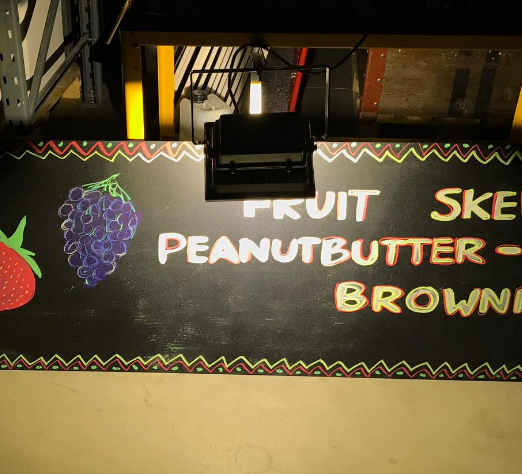 FRUIT SKE
PEANUTBUTTER-
BROWN